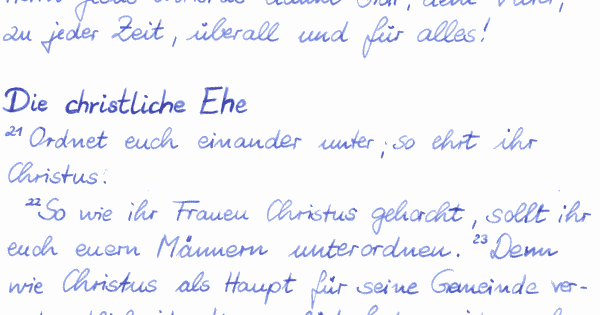 zu jeder Zeit, überall und für alles!
Die christliche Ehe
21 Ordnet euch einander unter; so ehrt ihr
Christus.
22 So wie ihr Frauen Christus gehorcht, sollt ihr
euch euern Männern unterordnen. 23 Denn
wie Christus als Haupt für seine Gemeinde ver-